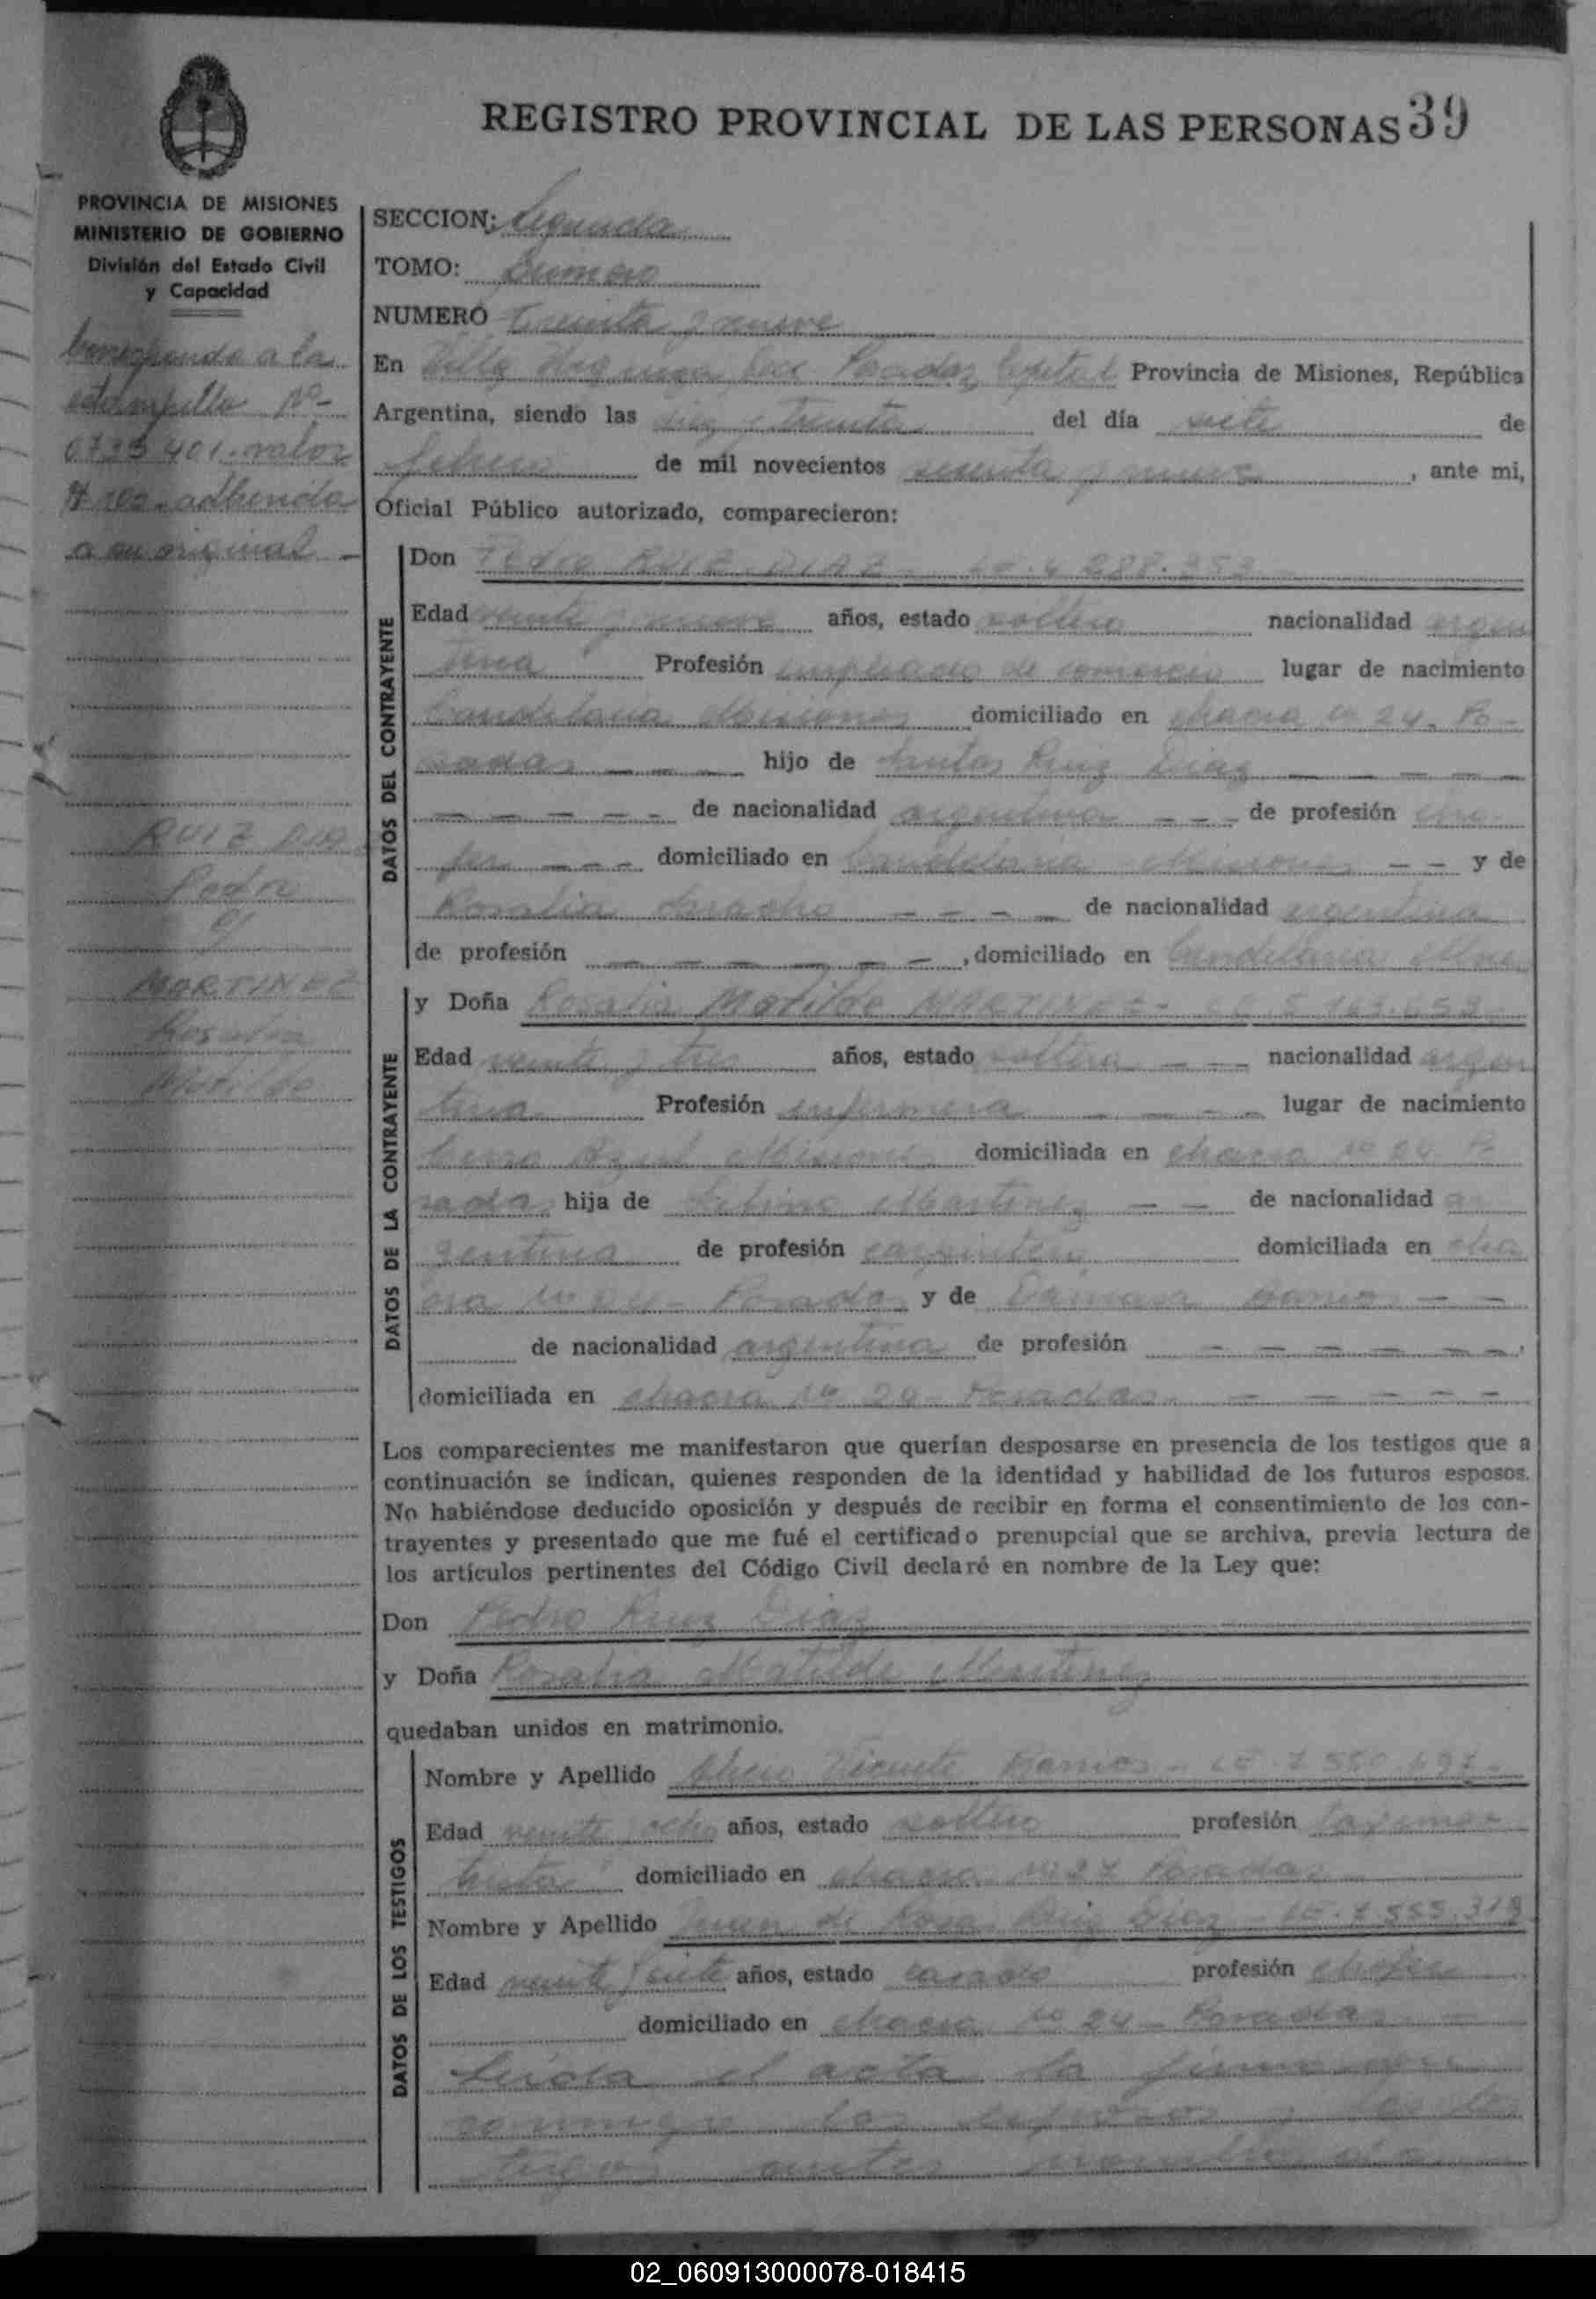 REGISTRO PROVINCIAL DE LAS PERSONAS 39
PROVINCIA DE MISIONES
MINISTERIO DE GOBIERNO
División del Estado Civil
y Capacidad
Corresponde a la
estampilla Nº
valor
adherida
a su original
RUIZ DIAZ
Pedro
MARTINEZ
Rosalia
Matilde
SECCION: Segunda
TOMO: Primero
NUMERO Treinta y nueve
En Villa Posadas Capital Provincia de Misiones, República
Argentina, siendo las diez treinta del día siete de
febrero de mil novecientos sesenta y nueve, ante mi,
Oficial Público autorizado, comparecieron:
DATOS DEL CONTRAYENTE
Don Pedro RUIZ DIAZ
Edad veinte y nueve años, estado soltero nacionalidad argen
tina Profesión empleado de comercio lugar de nacimiento
Candelaria Misiones domiciliado en chacra Nº 24. Po-
sadas hijo de Santos Ruiz Diaz
de nacionalidad argentina de profesión cho-
fer domiciliado en Candelaria Misiones y de
Rosalia de nacionalidad argentina
de profesión , domiciliado en Candelaria
DATOS DE LA CONTRAYENTE
y Doña Rosalia Matilde MARTINEZ
Edad veinte y tres años, estado soltera nacionalidad argen
tina Profesión enfermera lugar de nacimiento
Cerro Azul Misiones domiciliada en chacra Nº 24 Po
sadas hija de Martinez de nacionalidad ar
gentina de profesión carpintero domiciliada en cha
cra Nº 24 - Posadas y de Barrios
de nacionalidad argentina de profesión
domiciliada en chacra Nº 24 - Posadas
Los comparecientes me manifestaron que querían desposarse en presencia de los testigos que a
continuación se indican, quienes responden de la identidad y habilidad de los futuros esposos.
No habiéndose deducido oposición y después de recibir en forma el consentimiento de los con-
trayentes y presentado que me fué el certificado prenupcial que se archiva, previa lectura de
los artículos pertinentes del Código Civil declaré en nombre de la Ley que:
Don Pedro Ruiz Diaz
y Doña Rosalia Matilde Martinez
quedaban unidos en matrimonio.
DATOS DE LOS TESTIGOS
Nombre y Apellido Vicente Barrios
Edad veinte ocho años, estado soltero profesión taxime
trista domiciliado en chacra Nº 27 Posadas
Nombre y Apellido Juan de Rosa Ruiz Diaz
Edad veinte siete años, estado casado profesión chofer
domiciliado en chacra Nº 24 - Posadas
Leida el acta la firman
conmigo los esposos y los tes
tigos antes nombrados
02_060913000078-018415